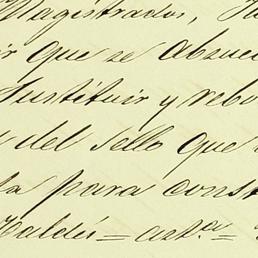 Magistrados,
ir que se absue
Sustituir y rebo
del sello que
ta para const
Valdés = art.ª =